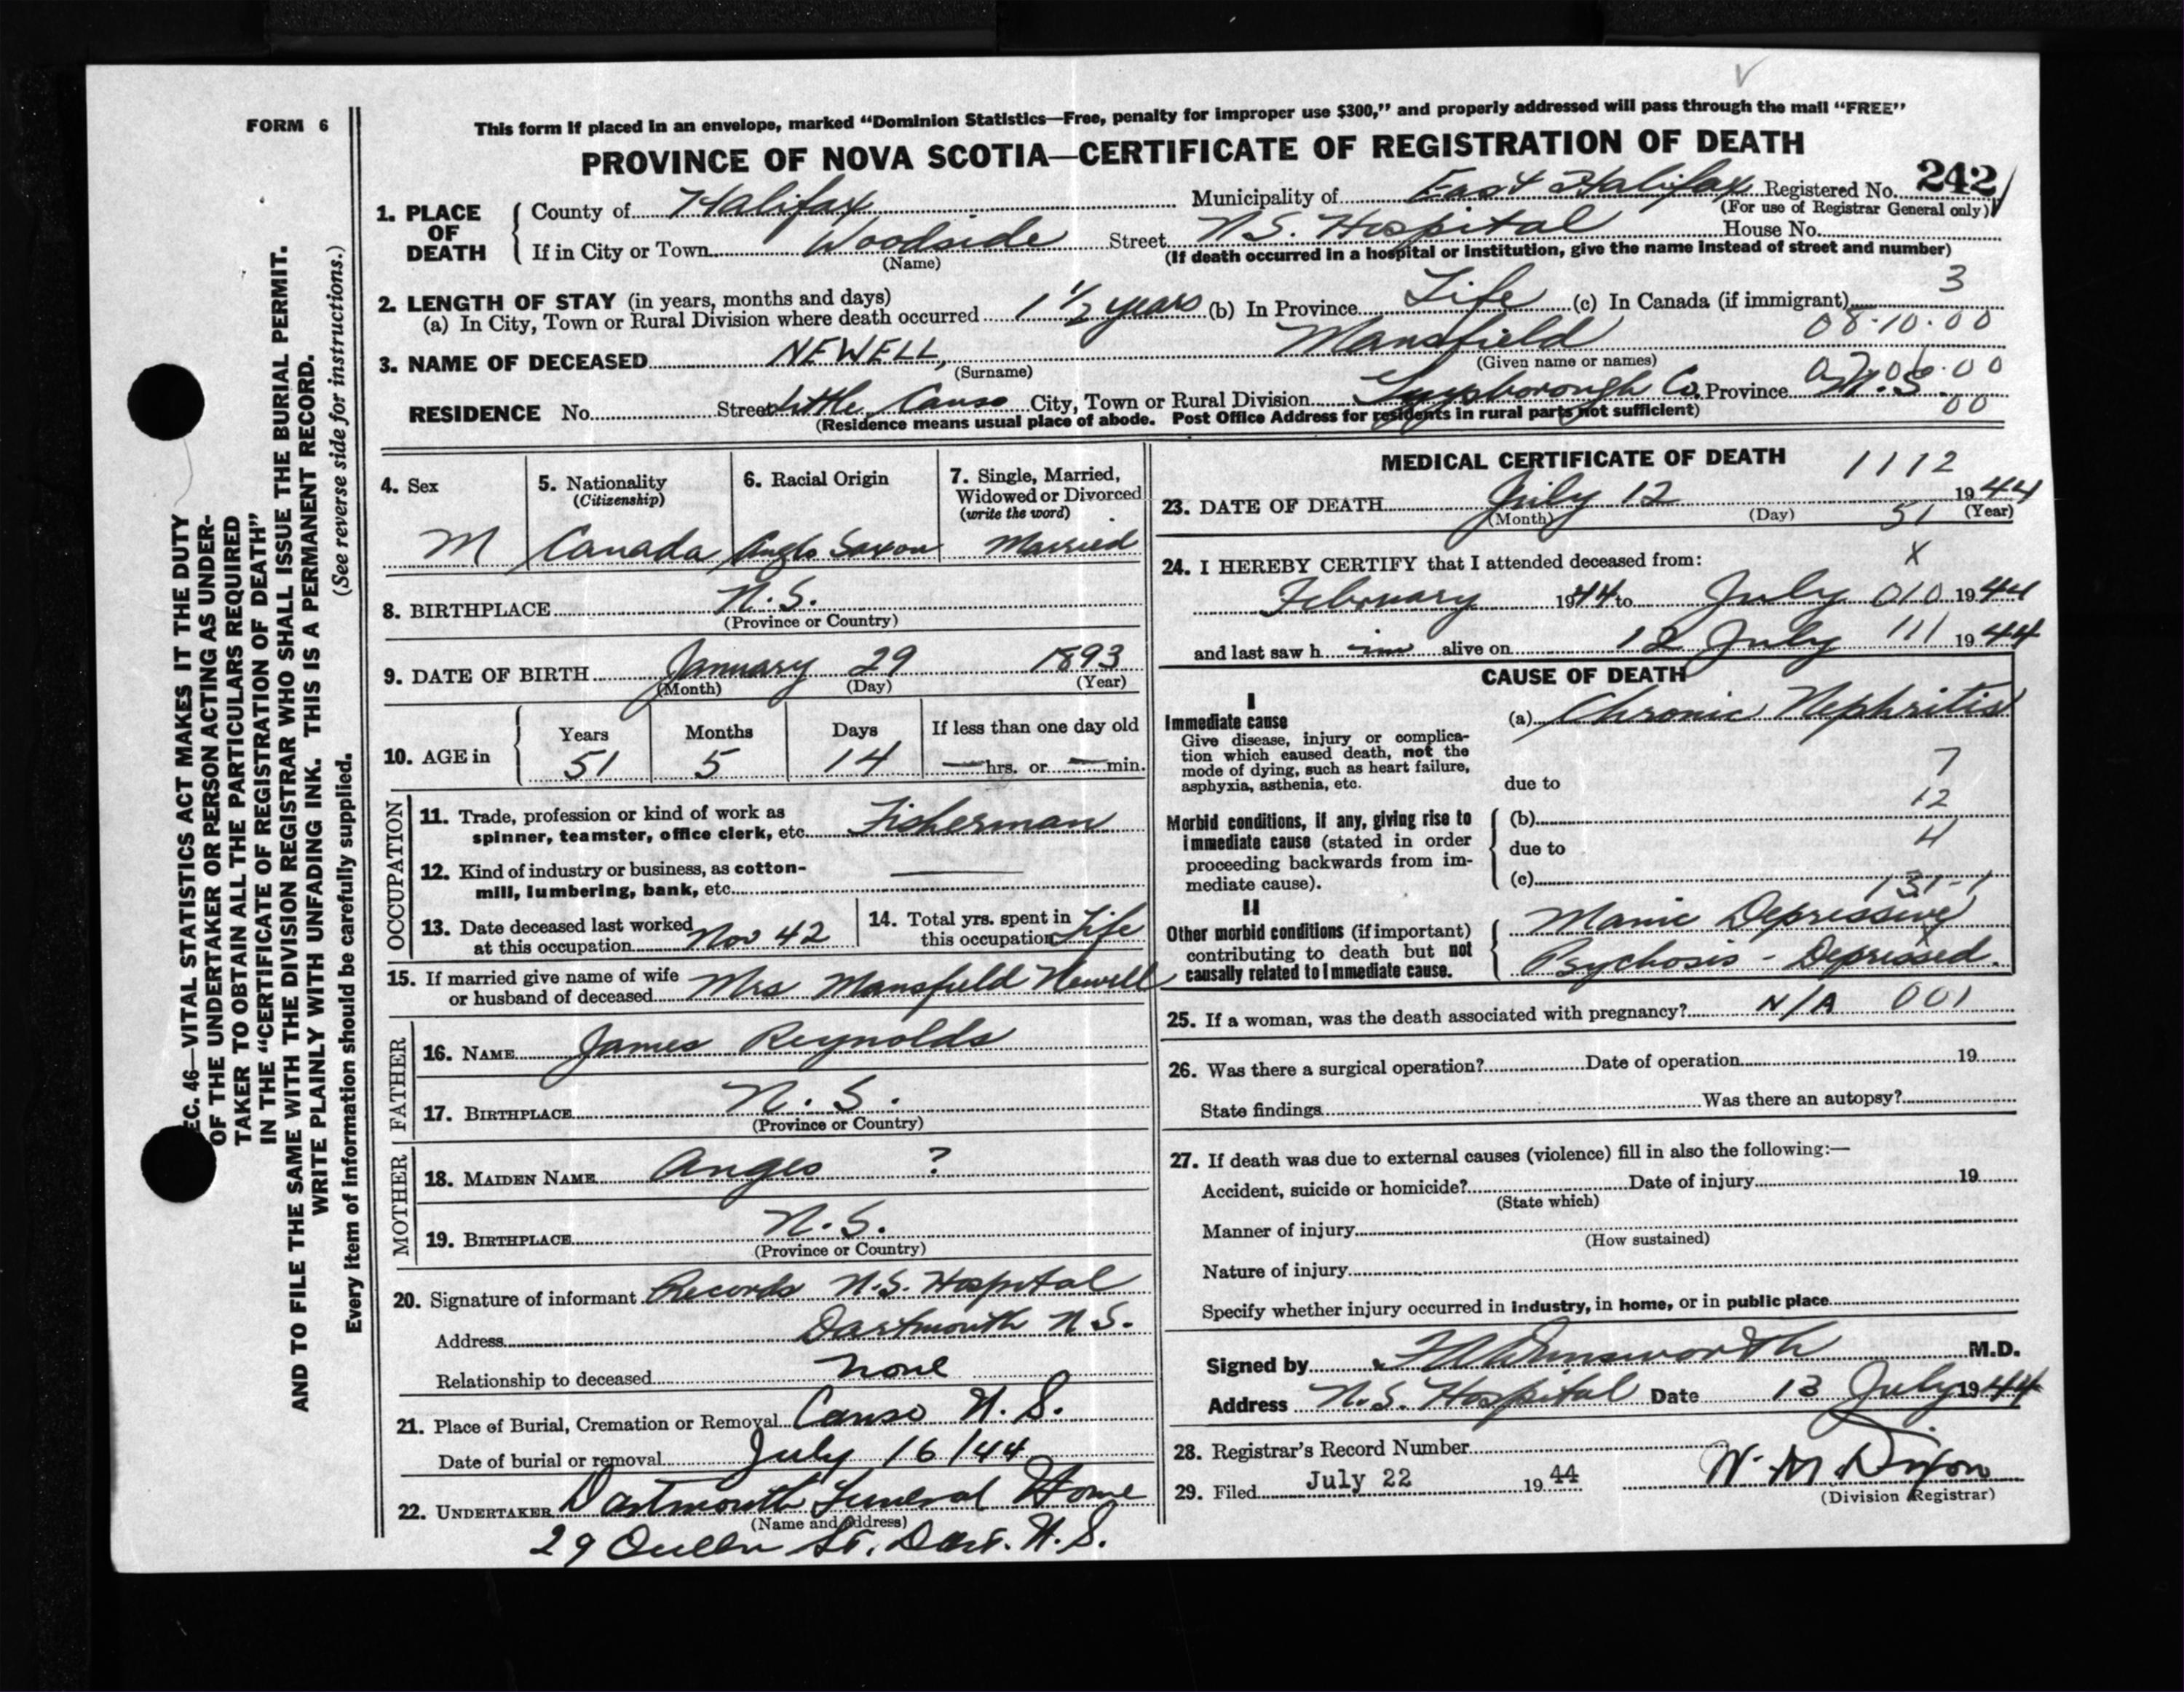 FORM 6
This form if placed in an envelope, marked “Dominion Statistics—Free, penalty for improper use $300,” and properly addressed will pass through the mail “FREE”
PROVINCE OF NOVA SCOTIA—CERTIFICATE OF REGISTRATION OF DEATH
1. PLACE OF DEATH
County of Halifax Municipality of East Halifax Registered No. 242
(For use of Registrar General only)
If in City or Town Woodside Street N.S. Hospital House No.
(Name) (If death occurred in a hospital or institution, give the name instead of street and number)
2. LENGTH OF STAY (in years, months and days) 3
(a) In City, Town or Rural Division where death occurred 1 1/2 years (b) In Province Life (c) In Canada (if immigrant)
08·10·00
3. NAME OF DECEASED NEWELL, Mansfield
(Surname) (Given name or names)
07·06·00
RESIDENCE No. Street Little Canso City, Town or Rural Division Guysborough Co. Province N.S.
(Residence means usual place of abode. Post Office Address for residents in rural parts not sufficient) 00
4. Sex
M
5. Nationality
(Citizenship)
Canada
6. Racial Origin
Anglo Saxon
7. Single, Married,
Widowed or Divorced
(write the word)
Married
8. BIRTHPLACE N.S.
(Province or Country)
9. DATE OF BIRTH January 29 1893
(Month) (Day) (Year)
10. AGE in
Years Months Days If less than one day old
51 5 14 — hrs. or — min.
OCCUPATION
11. Trade, profession or kind of work as
spinner, teamster, office clerk, etc. Fisherman
12. Kind of industry or business, as cotton-
mill, lumbering, bank, etc. —
13. Date deceased last worked
at this occupation Nov 42
14. Total yrs. spent in
this occupation Life
15. If married give name of wife
or husband of deceased Mrs Mansfield Newell
FATHER
16. NAME James Reynolds
17. BIRTHPLACE N.S.
(Province or Country)
MOTHER
18. MAIDEN NAME Anges ?
19. BIRTHPLACE N.S.
(Province or Country)
20. Signature of informant Records N.S. Hospital
Address Dartmouth N.S.
Relationship to deceased none
21. Place of Burial, Cremation or Removal Canso N.S.
Date of burial or removal July 16/44
22. UNDERTAKER Dartmouth Funeral Home
(Name and address)
29 Queen St. Dart. N.S.
MEDICAL CERTIFICATE OF DEATH 1112
23. DATE OF DEATH July 12 1944
(Month) (Day) 51 (Year)
24. I HEREBY CERTIFY that I attended deceased from: X
February 1944 to July 010 1944
and last saw h im alive on 12 July 111 1944
CAUSE OF DEATH
I
Immediate cause
Give disease, injury or complica-
tion which caused death, not the
mode of dying, such as heart failure,
asphyxia, asthenia, etc.
(a) Chronic Nephritis
7
due to
12
Morbid conditions, if any, giving rise to
immediate cause (stated in order
proceeding backwards from im-
mediate cause).
(b)
due to 4
(c)
131-1
II
Other morbid conditions (if important)
contributing to death but not
causally related to immediate cause.
Manic Depressive
Psychosis - Depressed.
25. If a woman, was the death associated with pregnancy? N/A 001
26. Was there a surgical operation? Date of operation 19
State findings Was there an autopsy?
27. If death was due to external causes (violence) fill in also the following:—
Accident, suicide or homicide? Date of injury 19
(State which)
Manner of injury
(How sustained)
Nature of injury
Specify whether injury occurred in industry, in home, or in public place
Signed by M.D.
Address N.S. Hospital Date 13 July 1944
28. Registrar's Record Number
29. Filed July 22 1944 W. M. Dixon
(Division Registrar)
EC. 46—VITAL STATISTICS ACT MAKES IT THE DUTY
OF THE UNDERTAKER OR PERSON ACTING AS UNDER-
TAKER TO OBTAIN ALL THE PARTICULARS REQUIRED
IN THE “CERTIFICATE OF REGISTRATION OF DEATH”
AND TO FILE THE SAME WITH THE DIVISION REGISTRAR WHO SHALL ISSUE THE BURIAL PERMIT.
WRITE PLAINLY WITH UNFADING INK. THIS IS A PERMANENT RECORD.
(See reverse side for instructions.)
Every item of information should be carefully supplied.